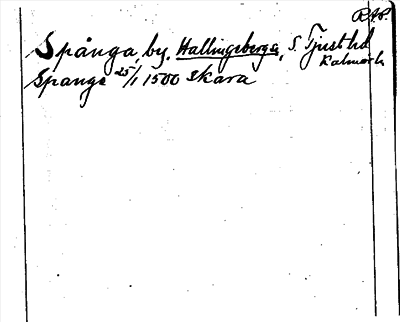 R.A.P.
Spånga, by, Hallingeberga, S. Tjust hd
Kalmar l.
Spange 25/1 1500 Skara